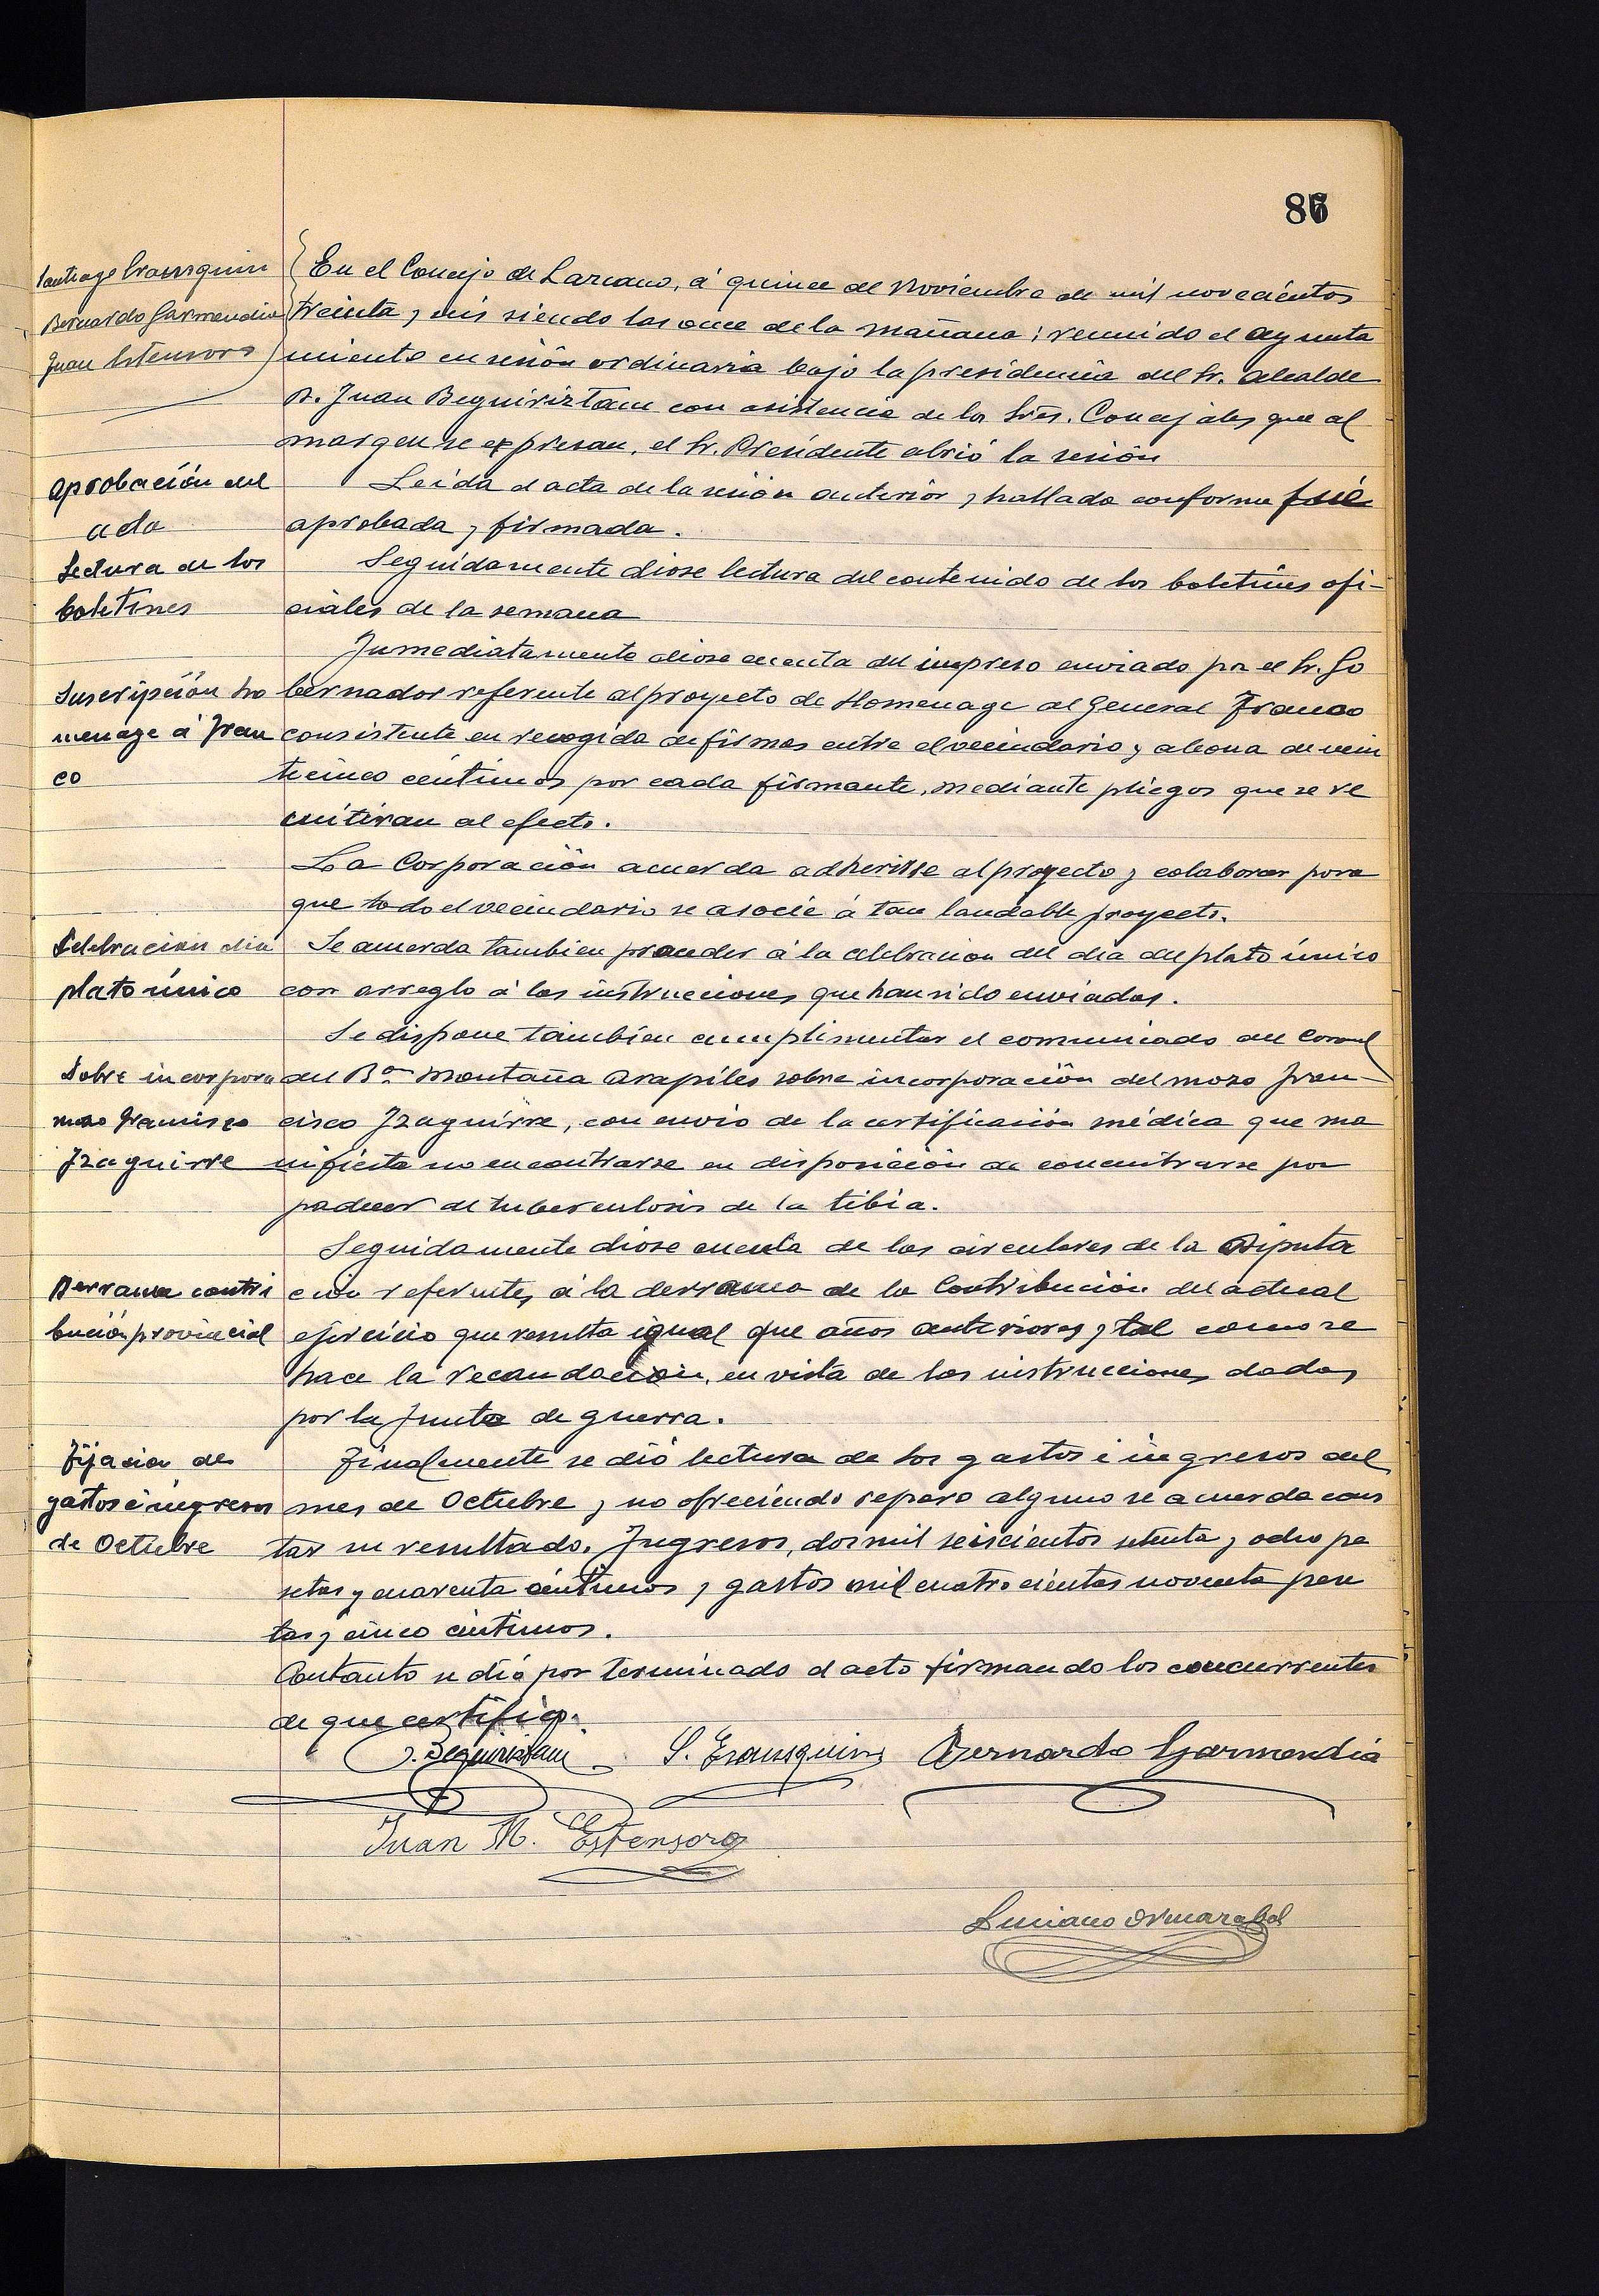 86
Santiago Erausquin
Bernardo Garmendia
Juan Estensoro
En el Concejo de Lazcano, á quince de Noviembre de mil novecientos
treinta y seis siendo las once de la mañana; reunido el ayunta
miento en sesión ordinaria bajo la presidencia del Sr. Alcalde
D. Juan Beguiriztain con asistencia de los Sres. Concejales que al
margen se expresan, el Sr. Presidente abrió la sesión
Aprobación del
acta
Leida el acta de la sesión anterior y hallada conforme fué
aprobada y firmada.
Lectura de los
boletines
Seguidamente diose lectura del contenido de los boletines ofi-
ciales de la semana
Suscripción ho
menage á Fran
co
Inmediatamente diose cuenta del impreso enviado por el Sr. Go
bernador referente al proyecto de Homenage al General Franco
consistente en recogida de firmas entre el vecindario y abona de vein
ticinco céntimos por cada firmante, mediante pliegos que se re
mitiran al efecto.
La Corporación acuerda adherirse al proyecto y colaborar para
que todo el vecindario se asocie á tan laudable proyecto.
Celebracion dia
plato único
Se acuerda tambien proceder á la celebracion del dia del plato único
con arreglo á las instrucciones que han sido enviadas.
Sobre incorpora
mozo Francisco
Izaguirre
Se dispone tambien cumplimentar el comunicado del Coronel
del Bon Montaña Arapiles sobre incorporación del mozo Fran-
cisco Izaguirre, con envio de la certificación médica que ma
nifiesta no encontrarse en disposición de concentrarse por
padecer de tuberculosis de la tibia.
Derrama contri
bución provincial
Seguidamente diose cuenta de las circulares de la Diputa
ción referentes á la derrama de la Contribución del actual
ejercicio que resulta igual que años anteriores y tal como se
hace la recaudación, en vista de las instrucciones dadas
por la Junta de guerra.
Fijacion de
gastos é ingresos
de Octubre
Finalmente se dió lectura de los gastos é ingresos del
mes de Octubre y no ofreciendo reparo alguno se acuerda cons
tar su resultado. Ingresos, dos mil seiscientos setenta y ocho pe
setas y cuarenta céntimos y gastos mil cuatrocientas noventa pese
tas y cinco céntimos.
Contanto se dió por terminado el acto firmando los concurrentes
de que certifico.
J. Beguiristain S. Erausquin Bernardo Garmendia
Juan M. Estensoro
Luciano